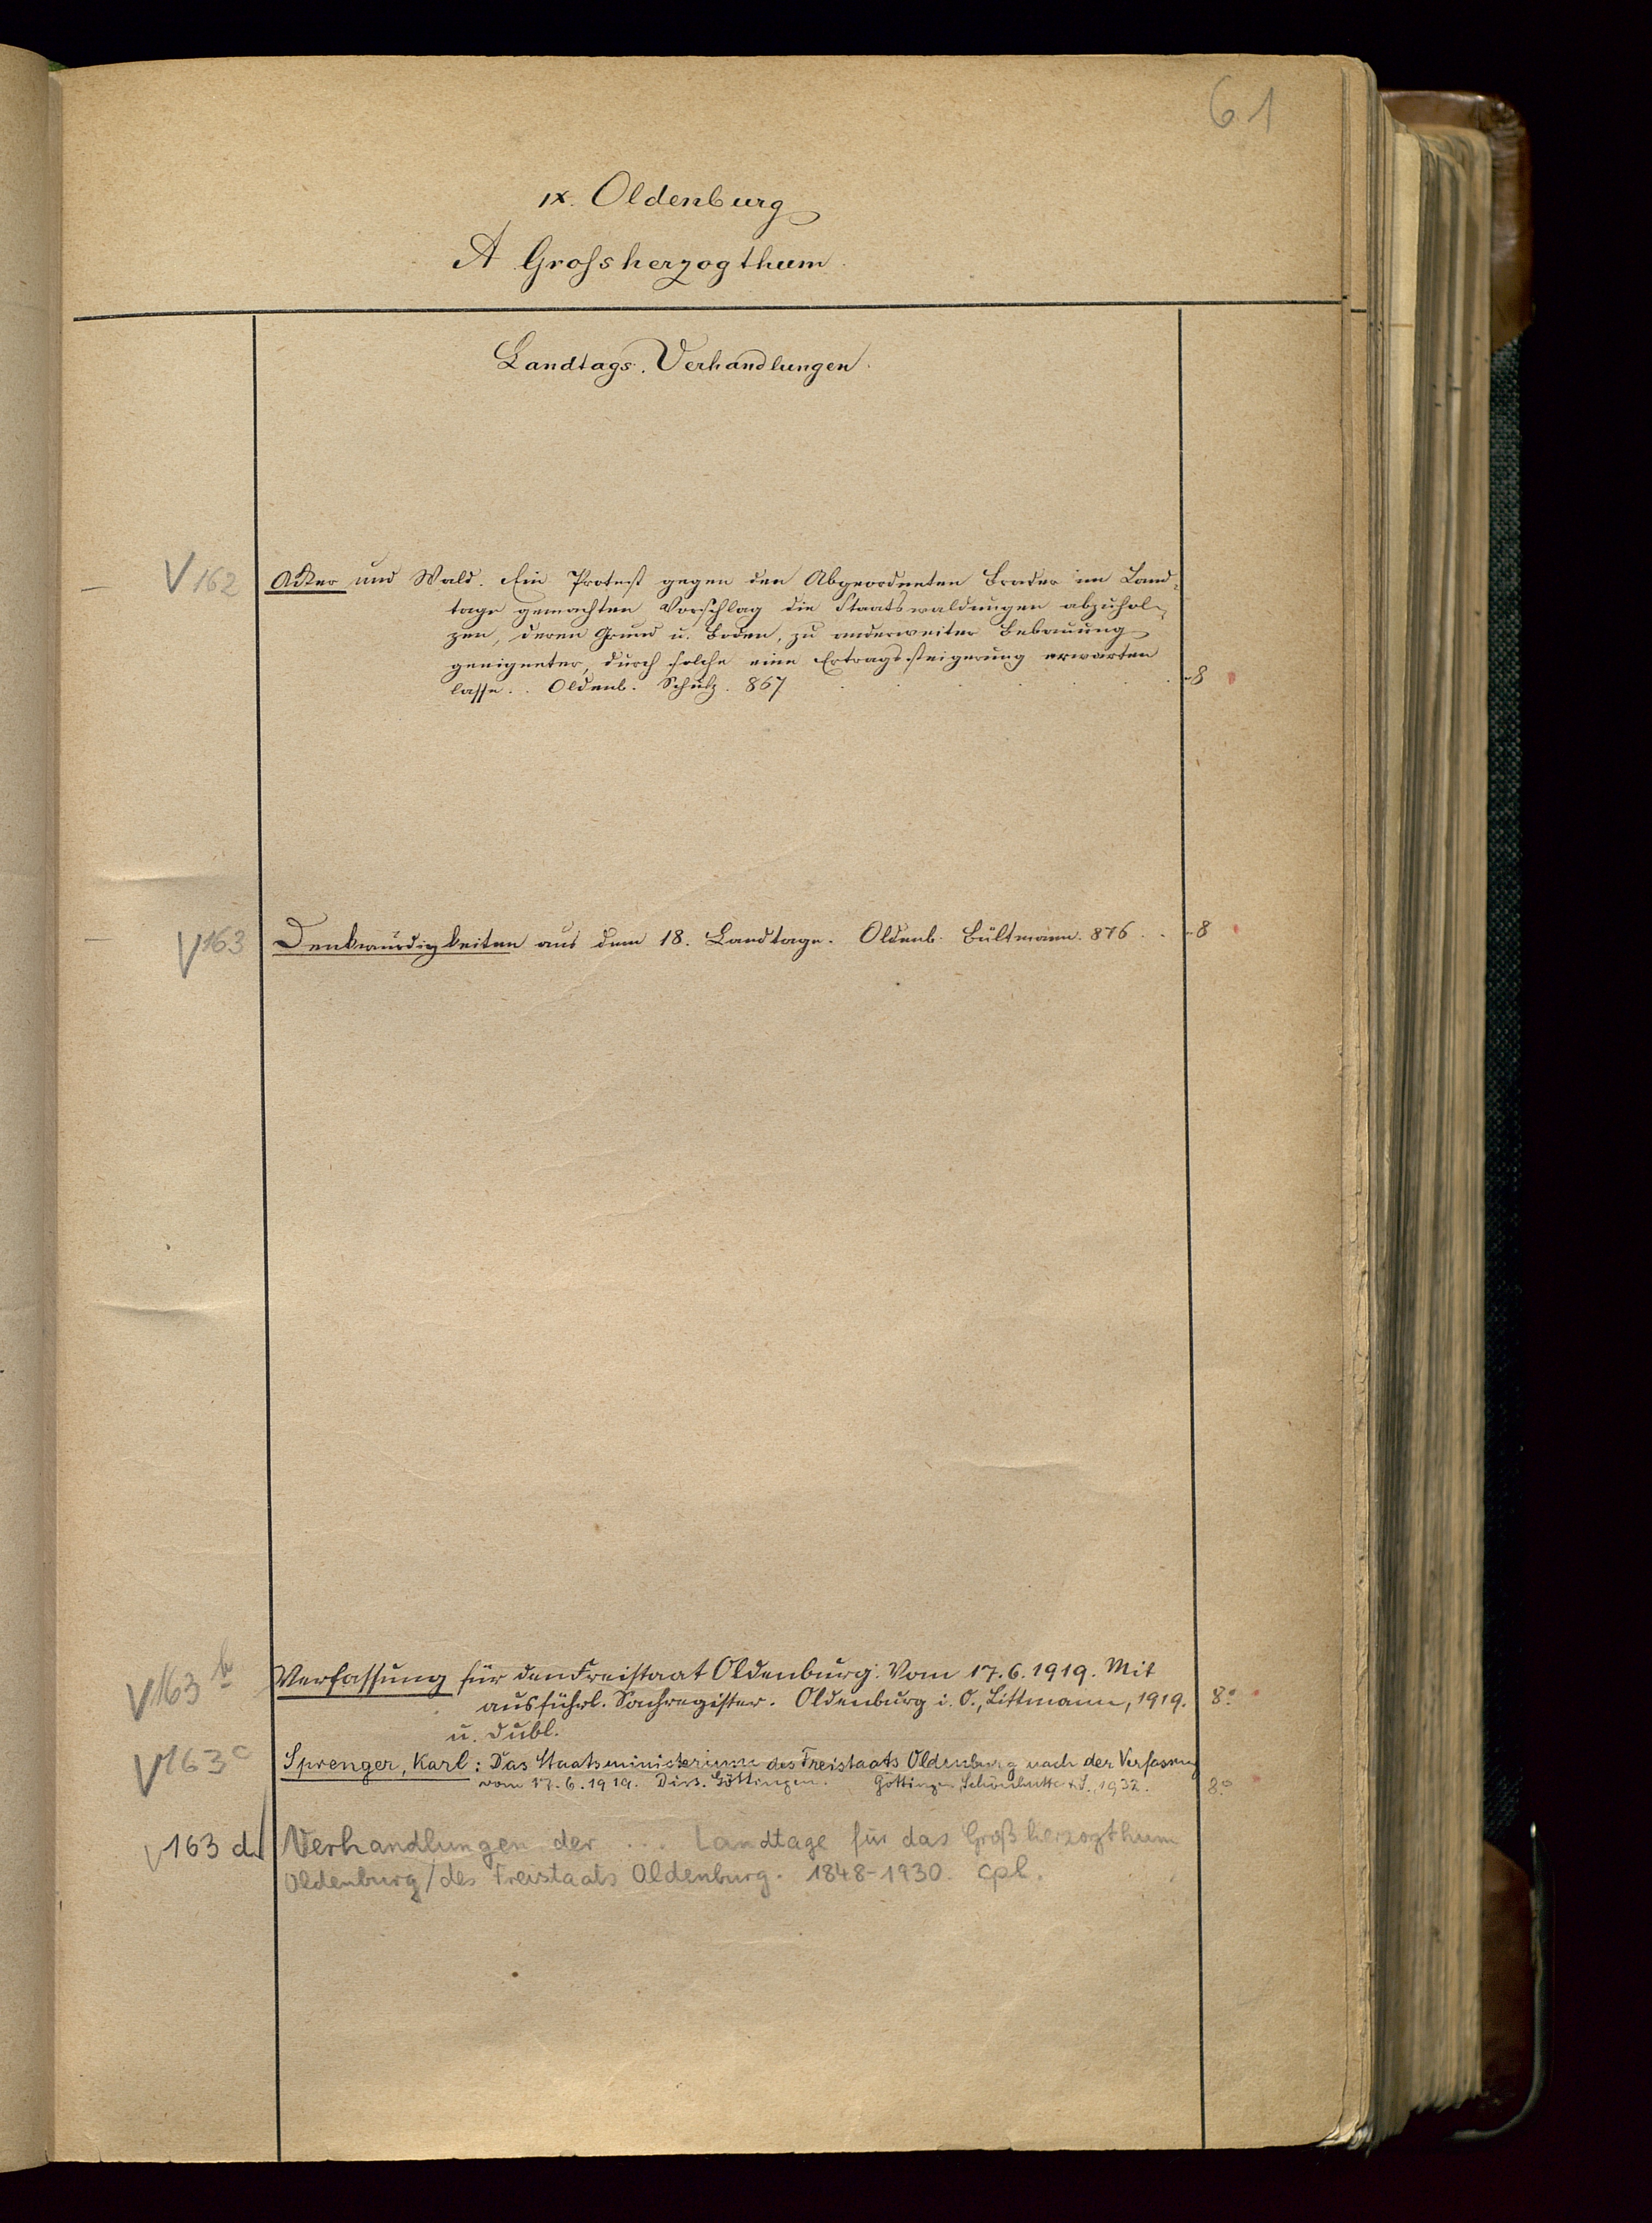 61
IX. Oldenburg
A Grossherzogthum
Landtags-Verhandlungen.
V 162 Acker und Wald. Ein Protest gegen den Abgeordneten Brader im Land-
tage gemachten Vorschlag die Staatswaldungen abzuhol-
zen, deren Grund u. Boden, zu anderweiter Bebauung
geeigneter, durch solche eine Ertragssteigerung erwarten
lasse. . Oldenb. Schulz. 867 . . . . . -8
V 163 Denkwürdigkeiten aus dem 18. Landtage. Oldenb. Bültmann. 876 . . -8
V 163 b Verfassung für den Freistaat Oldenburg. Vom 17.6.1919. Mit
ausführl. Sachregister. Oldenburg i. O., Littmann, 1919. 8°
u. Dubl.
V 163 c Sprenger, Karl: Das Staatsministerium des Freistaats Oldenburg nach der Verfassung
vom 17.6.1919. Diss. Göttingen. Göttingen, 1932. 8°
V 163 d Verhandlungen der ... Landtage für das Großherzogthum
Oldenburg/des Freistaats Oldenburg. 1848-1930. cpl.